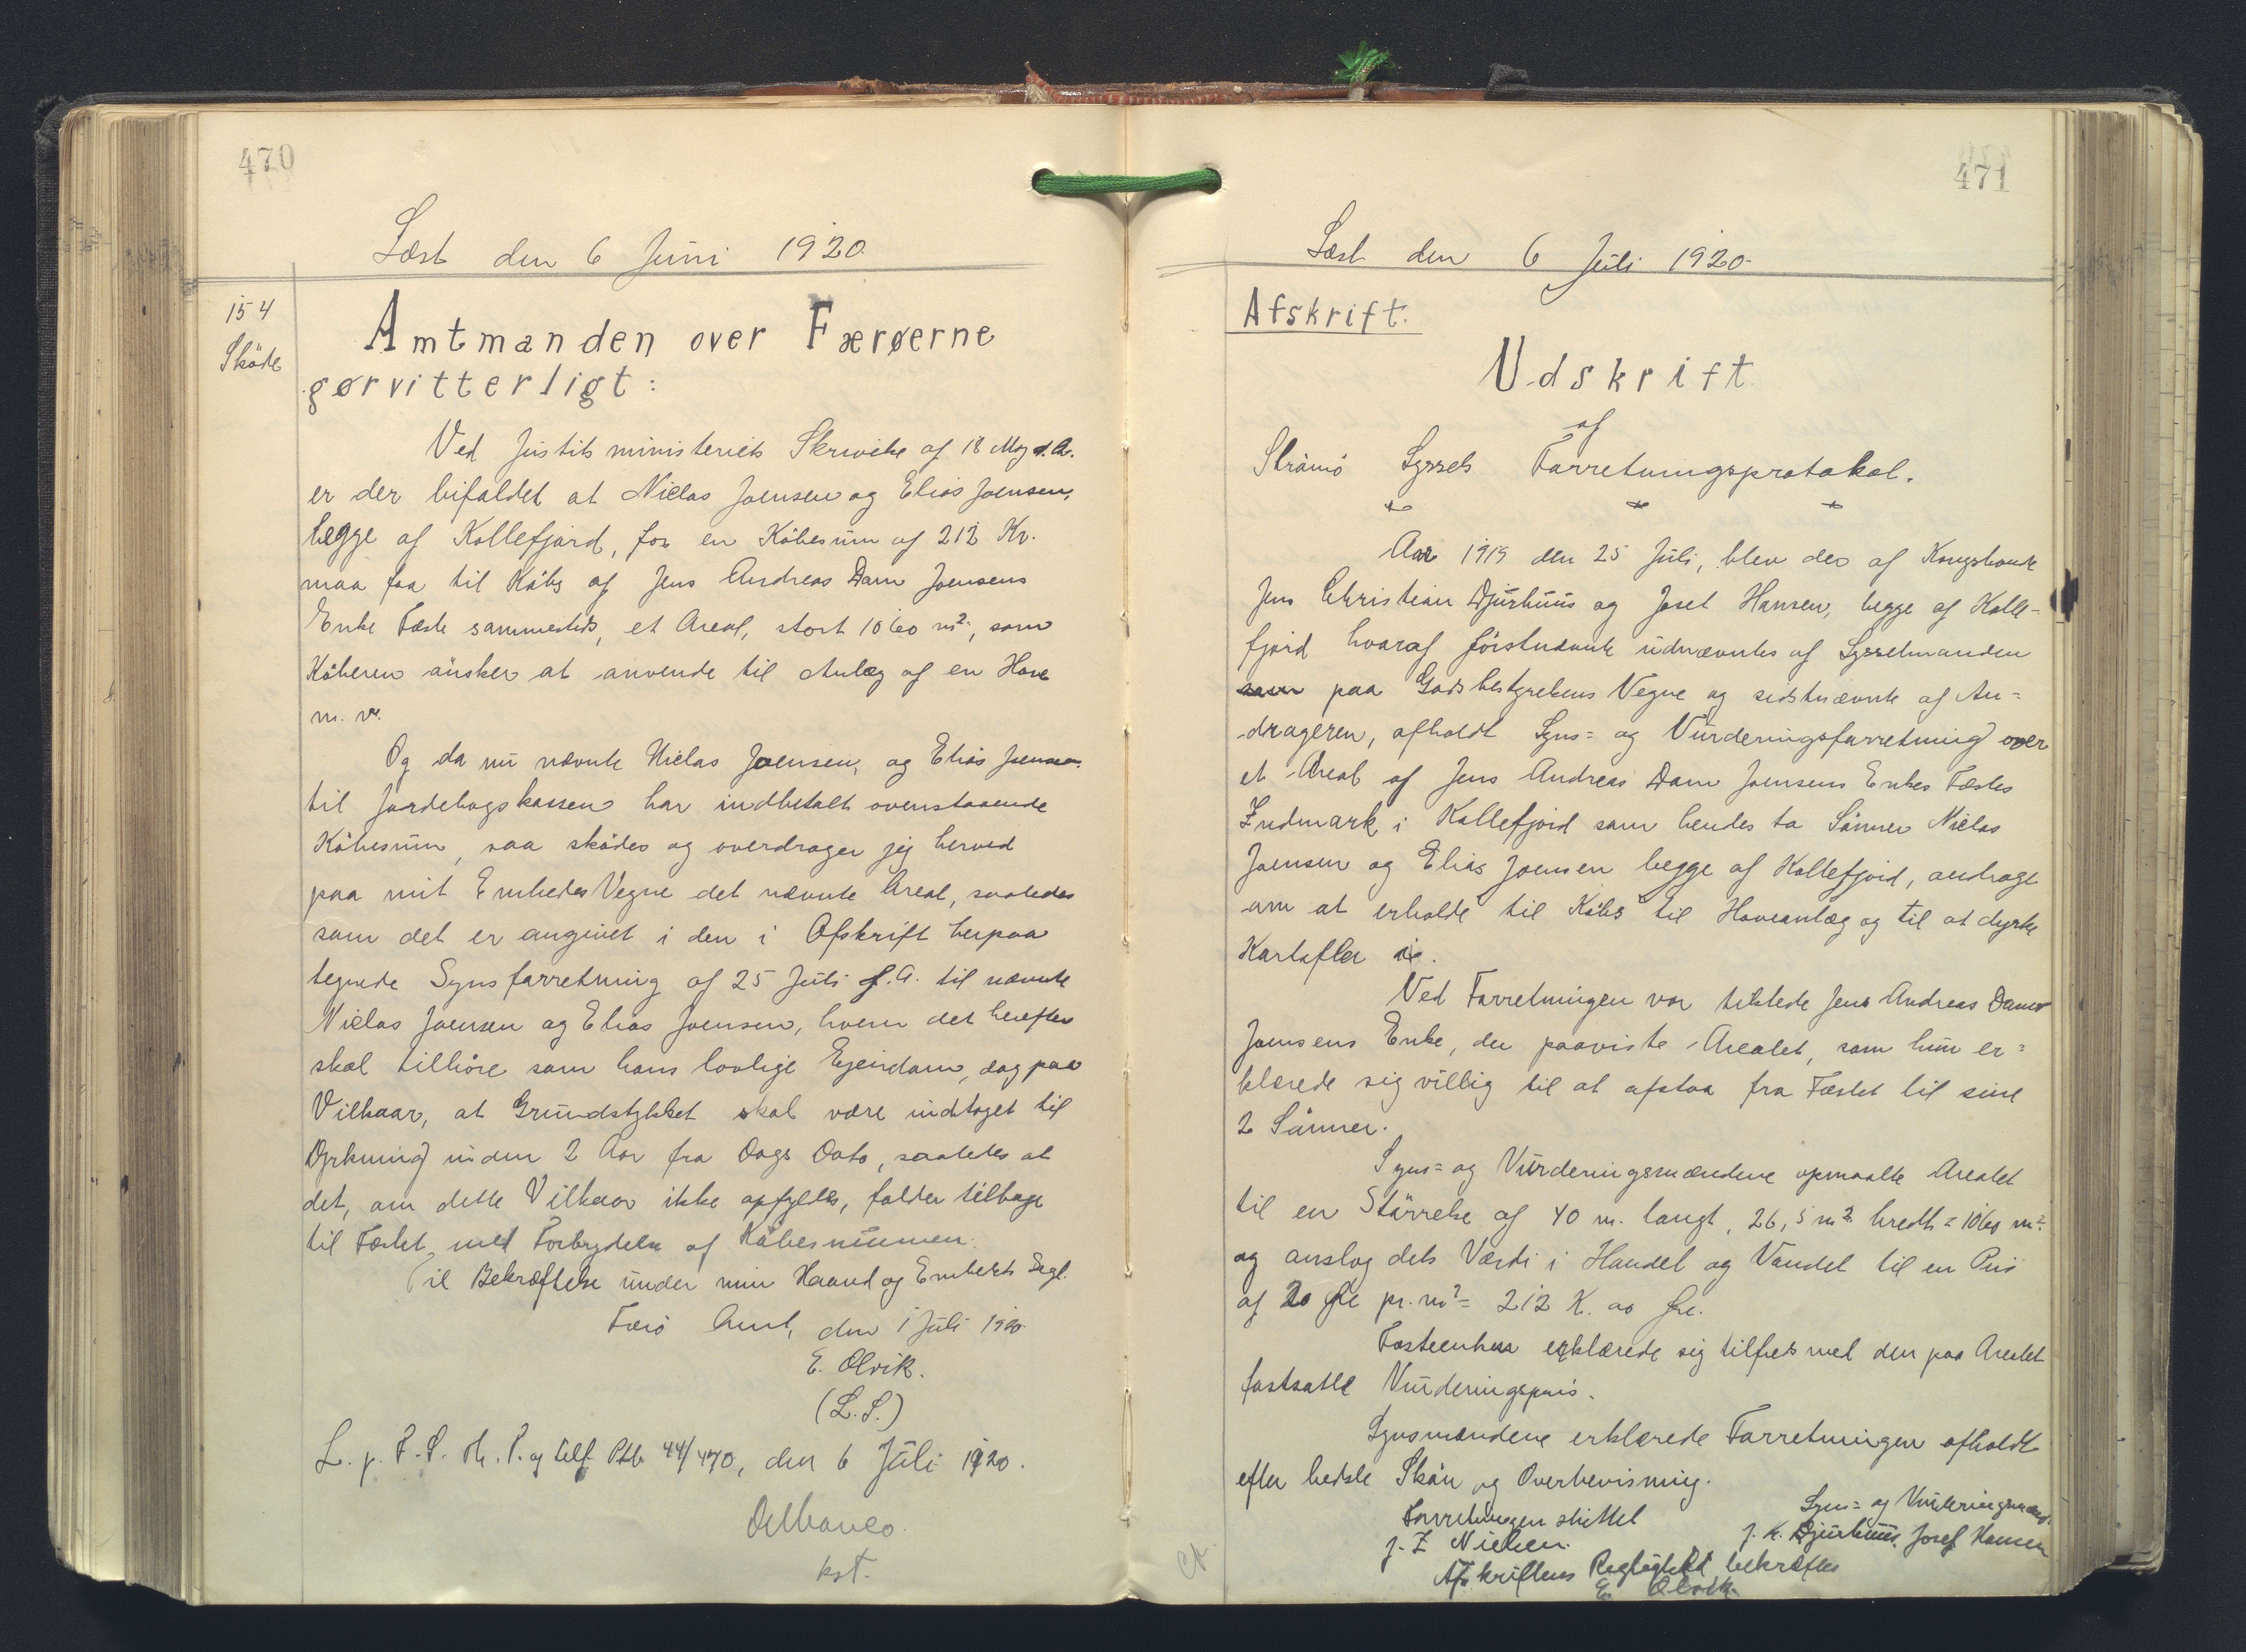 470
Læst den 6 Juni 1920.
154
Skøde
Amtmanden over Færøerne
gørvitterligt:
Ved Justitsministeriets Skrivelse af 18 Maj d.A.
er der bifaldet at Niclas Joensen og Elias Joensen,
begge af Kollefjord, for en Købesum af 212 Kr.
maa faa til Købs af Jens Andreas Dam Joensens
Enke Fæste sammesteds, et Areal, stort 1060 m², som
Køberen ønsker at anvende til Anlæg af en Have
m. v.
Og da nu nævnte Niclas Joensen, og Elias Joensen
til Jordebogskassen har indbetalt ovenstaaende
Købesum, saa skøder og overdrager jeg herved
paa mit Embedes Vegne det nævnte Areal, saaledes
som det er angivet i den i Afskrift herpaa
tegnede Synsforretning af 25 Juli f.A. til nævnte
Niclas Joensen og Elias Joensen, hvem det herefter
skal tilhøre som hans lovlige Ejendom, dog paa
Vilkaar, at Grundstykket skal være indtaget til
Dyrkning inden 2 Aar fra Dags Dato, saaledes at
det, om dette Vilkaar ikke opfyldes, falder tilbage
til Fæstet med Forbrydelse af Købesummen.
Til Bekræftelse under min Haand og Embeds Segl.
Færø Amt, den 1 Juli 1920
E. Olrik.
(L.S.)
L. p. F.S. M. P. og tilf. Ptb. 44/470, den 6 Juli 1920.
Delbanco.
kst.
471
Læst den 6 Juli 1920.
Afskrift.
Udskrift
af
Strømø Syssels Forretningsprotokol.
Aar 1919 den 25 Juli, blev der af Kongsbonde
Jens Christian Djurhuus og Josef Hansen, begge af Kolle-
fjord hvoraf førstnævnte udnævntes af Sysselmanden
paa Godsbestyrelsens Vegne og sidstnævnte af An=
drageren, afholdt Syns= og Vurderingsforretning over
et Areal af Jens Andreas Dam Joensens Enkes Fæstes
Indmark i Kollefjord som hendes to Sønner Niclas
Joensen og Elias Joensen begge af Kollefjord, androge
om at erholde til Købs til Haveanlæg og til at dyrke
Kartofler i.
Ved Forretningen var tilstede Jens Andreas Dam
Joensens Enke, der paaviste Arealet, som hun er=
klærede sig villig til at afstaa fra Fæstet til sine
2 Sønner.
Syns= og Vurderingsmændene opmaalte Arealet
til en Størrelse af 40 m. langt, 26,5 m² bredt = 1060 m².
og anslog dets Værdi i Handel og Vandel til en Pris
af 20 Øre pr. m² = 212 K. 00 Øre.
Fæsteenken erklærede sig tilfreds med den paa Arealet
fastsatte Vurderingspris.
Synsmændene erklærede Forretningen afholdt
efter bedste Skøn og Overbevisning.
Forretningen sluttet
Syns= og Vurderingsmænd.
J. Z Nielsen.
J. K. Djurhuus. Josef Hansen
Afskriftens Rigtighed bekræftes
E. Olrik.